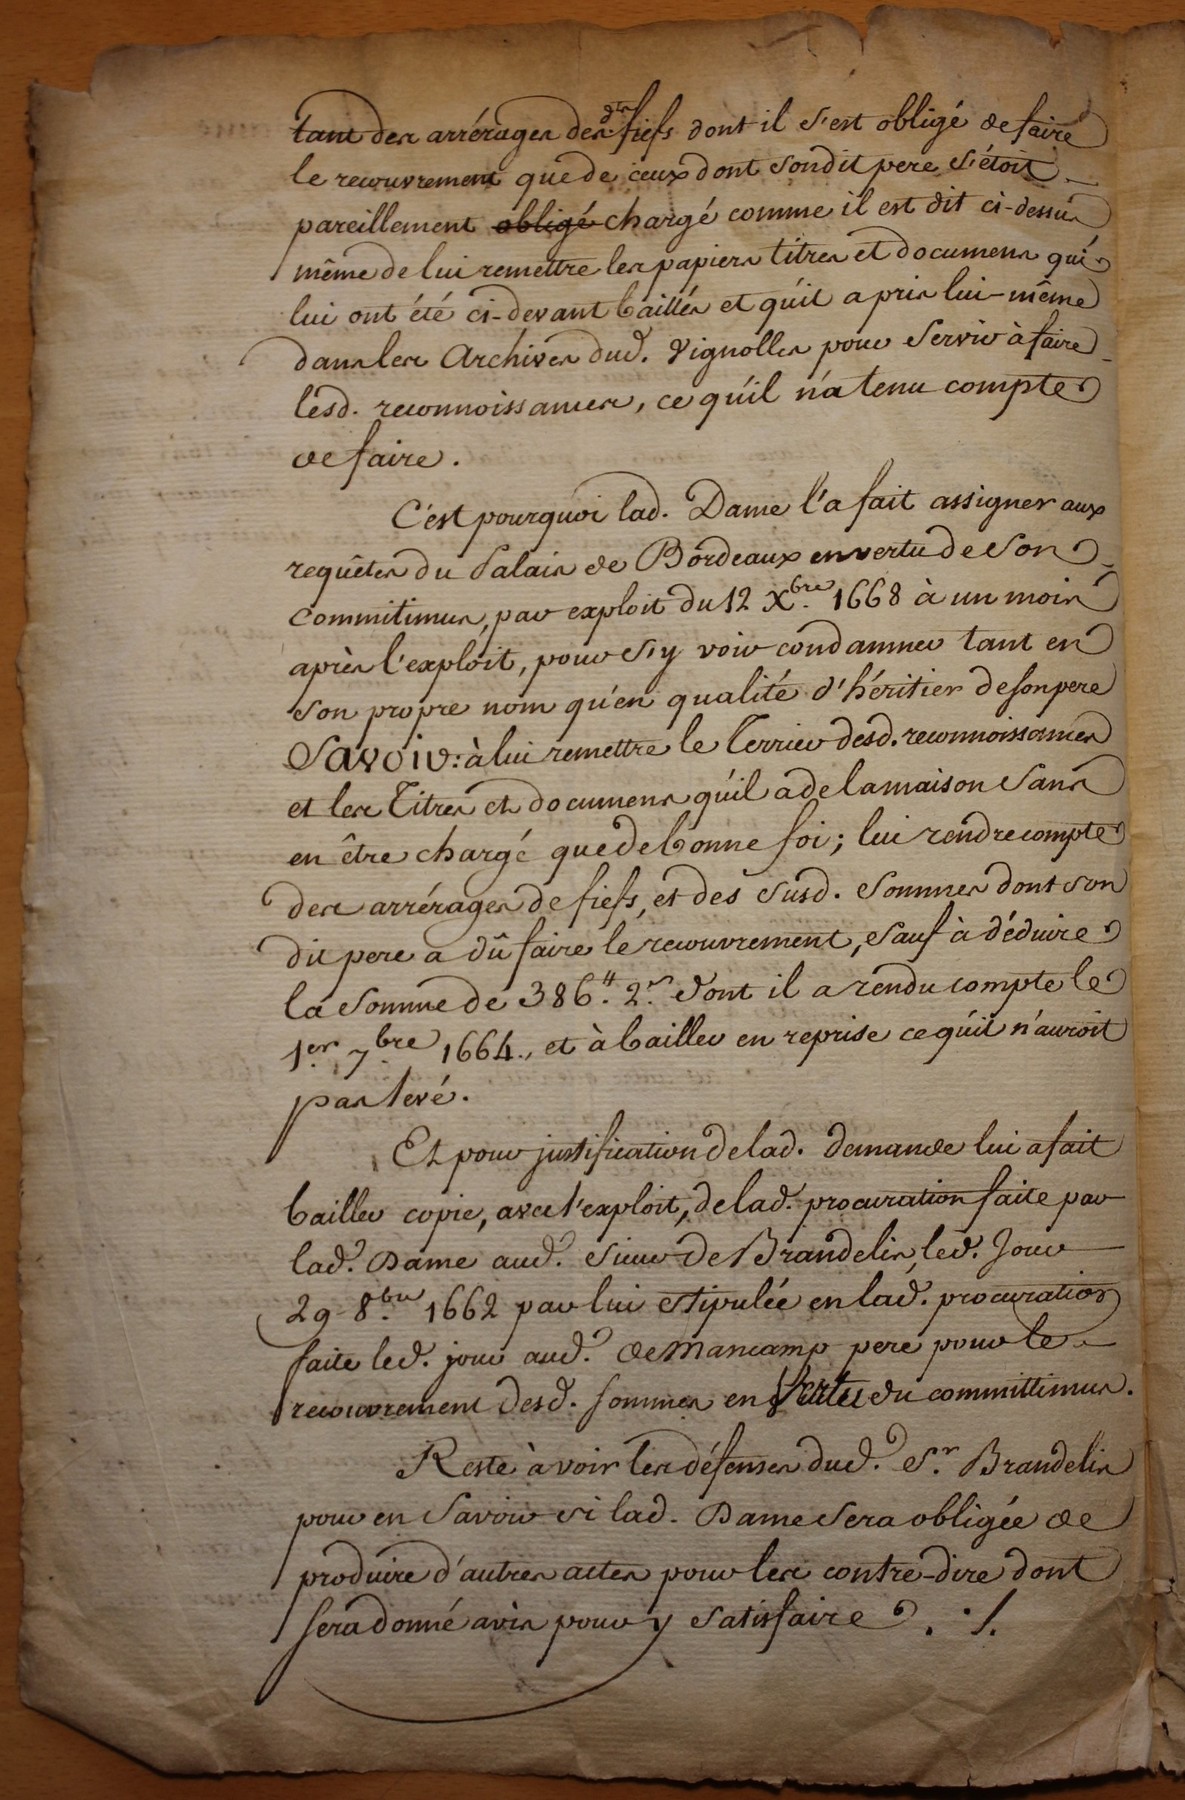 tant des arrérages des dts fiefs dont il s'est obligé de faire
le recouvrement que de ceux dont sondit pere s'étoit
pareillement obligé chargé comme il est dit ci-dessus
même de lui remettre les papiers titres et documens qui
lui ont été ci-devant baillés et qu'il a pris lui-même
dans les Archives dud. Vignolles pour servir à faire
lesd. reconnoissances, ce qu'il n'a tenu compte
de faire.
C'est pourquoi lad. Dame l'a fait assigner aux
requêtes du Palais de Bordeaux en vertu de son
commitimus, par exploit du 12 Xbre. 1668 à un mois
après l'exploit, pour s'y voir condamner tant en
son propre nom qu'en qualité d'héritier de son pere
Savoir: à lui remettre le Terrier desd. reconnoissances
et les Titres et documens qu'il a de la maison sans
en être chargé que de bonne foi; lui rendre compte
des arrérages de fiefs, et des susd. sommes dont son
dit pere a dû faire le recouvrement, sauf à déduire
la somme de 386.tt 2.s dont il a rendu compte le
1.er 7.bre 1664., et à bailler en reprise ce qu'il n'auroit
pas levé.
Et pour justification de lad. demande lui a fait
bailler copie, avec l'exploit, de lad. procuration faite par
lad. Dame aud. Sieur de Brandelis, led. Jour
29 8.bre 1662 par lui stipulée en lad. procuration
faite led. jour aud. de Mancamp pere pour le
recouvrement desd. sommes en Vertu du committimus.
Reste à voir les défenses dud. S.r Brandelis
pour en savoir si lad. Dame sera obligée de
produire d'autres actes pour les contre-dire dont
sera donné avis pour y satisfaire. ./.